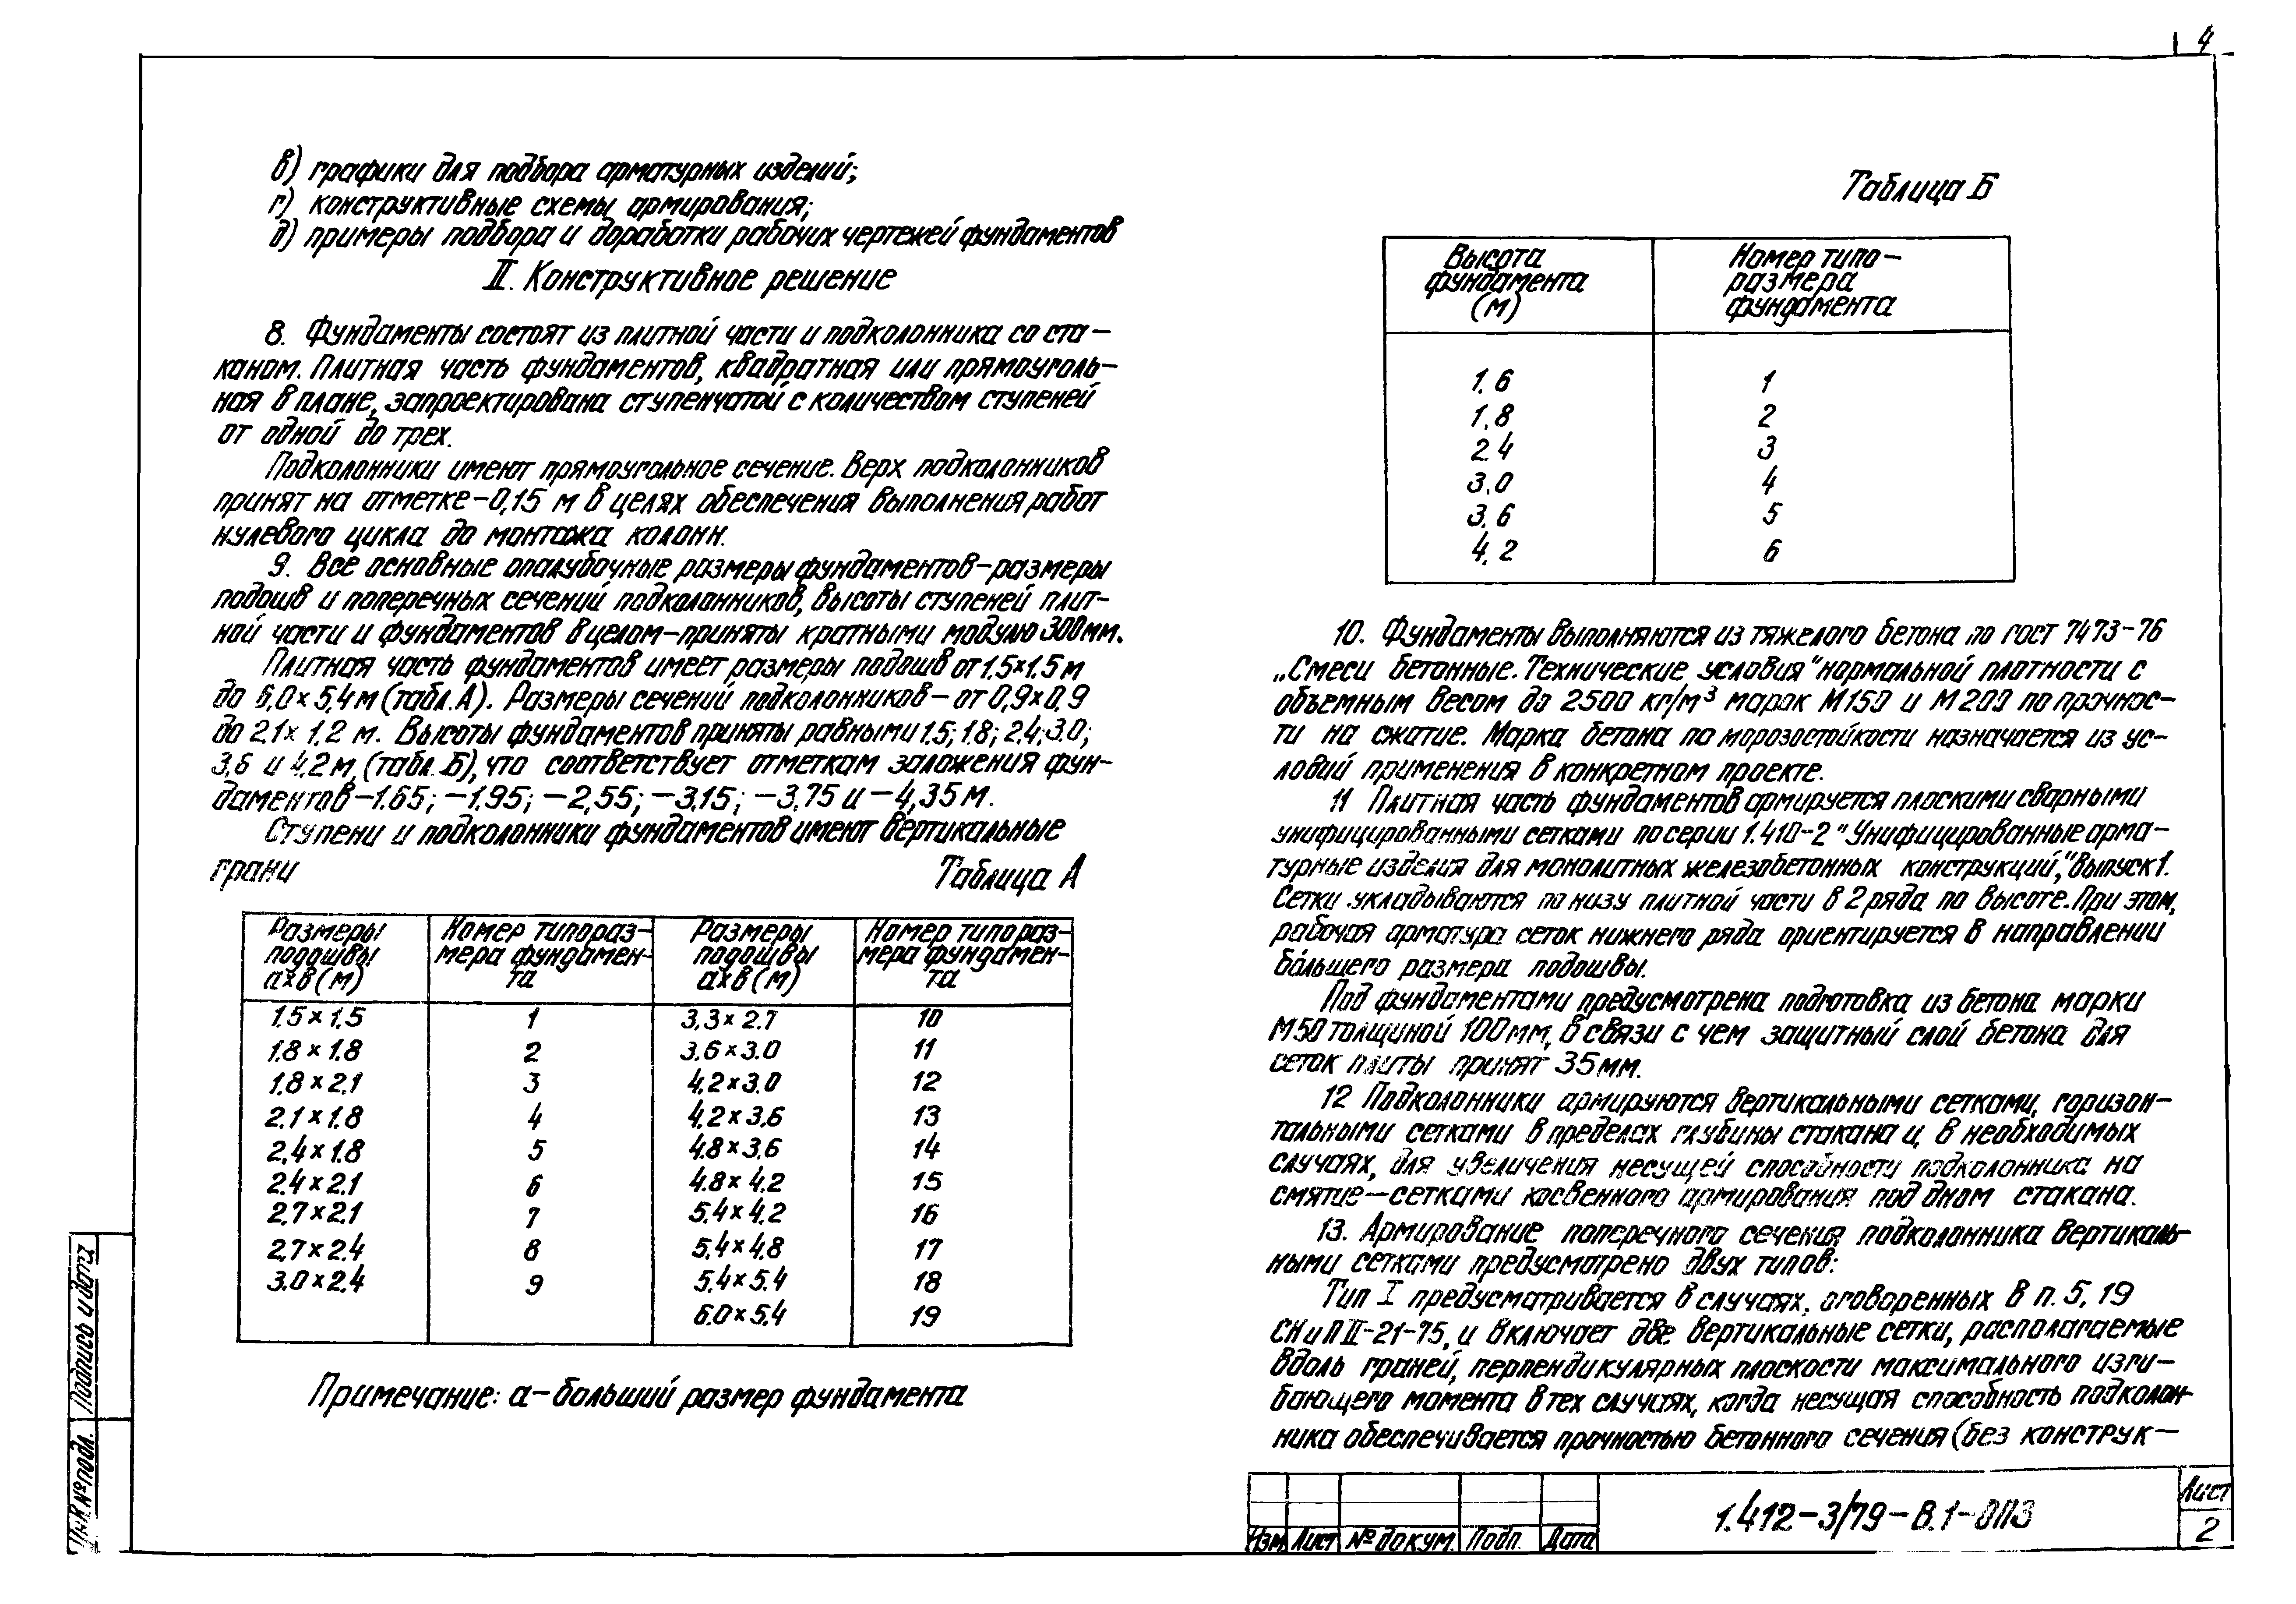 4
в) графики для подбора арматурных изделий;
г) конструктивные схемы армирования;
д) примеры подбора и доработки рабочих чертежей фундаментов
II. Конструктивное решение
8. Фундаменты состоят из плитной части и подколонника со ста-
каном. Плитная часть фундаментов, квадратная или прямоуголь-
ная в плане, запроектирована ступенчатой с количеством ступеней
от одной до трех.
Подколонники имеют прямоугольное сечение. Верх подколонников
принят на отметке -0,15 м в целях обеспечения выполнения работ
нулевого цикла до монтажа колонн.
9. Все основные опалубочные размеры фундаментов-размеры
подошв и поперечных сечений подколонников, высоты ступеней плит-
ной части и фундаментов в целом-приняты кратными модулю 300мм.
Плитная часть фундаментов имеет размеры подошв от 1.5×1.5 м
до 6,0×5,4м (табл. А). Размеры сечений подколонников - от 0,9×0,9
до 2.1× 1.2 м. Высоты фундаментов приняты равными 1.5; 1.8; 2.4; 3.0;
3,6 и 4,2м, (табл. Б), что соответствует отметкам заложения фун-
даментов -1.65; -1.95; -2,55; -3.15; -3,75 и -4,35 м.
Ступени и подколонники фундаментов имеют вертикальные
грани
Таблица А
Размеры подошвы ахв (м) | Номер типораз- мера фундамен- та | Размеры подошвы ахв (м) | Номер типораз- мера фундамен- та
1.5×1.5 | 1 | 3.3×2.7 | 10
1.8×1.8 | 2 | 3.6×3.0 | 11
1.8×2.1 | 3 | 4.2×3.0 | 12
2.1×1.8 | 4 | 4.2×3.6 | 13
2,4×1.8 | 5 | 4.8×3.6 | 14
2.4×2.1 | 6 | 4.8×4.2 | 15
2.7×2.1 | 7 | 5.4×4.2 | 16
2.7×2.4 | 8 | 5.4×4.8 | 17
3.0×2.4 | 9 | 5.4×5.4 | 18
6.0×5.4 | 19
Примечание: а-больший размер фундамента
Таблица Б
Высота фундамента (м) | Номер типо- размера фундамента
1.6 | 1
1.8 | 2
2.4 | 3
3.0 | 4
3.6 | 5
4.2 | 6
10. Фундаменты выполняются из тяжелого бетона по гост 7473-76
„Смеси бетонные. Технические условия" нормальной плотности с
объемным весом до 2500 кг/м³ марок М150 и М200 по прочнос-
ти на сжатие. Марка бетона по морозостойкости назначается из ус-
ловий применения в конкретном проекте.
11 Плитная часть фундаментов армируется плоскими сварными
унифицированными сетками по серии 1.410-2 "Унифицированные арма-
турные изделия для монолитных железобетонных конструкций," выпуск 1.
Сетки укладываются по низу плитной части в 2 ряда по высоте. При этом,
рабочая арматура сеток нижнего ряда ориентируется в направлении
бóльшего размера подошвы.
Под фундаментами предусмотрена подготовка из бетона марки
М50 толщиной 100 мм, в связи с чем защитный слой бетона для
сеток плиты принят 35 мм.
12 Подколонники армируются вертикальными сетками, горизон-
тальными сетками в пределах глубины стакана и, в необходимых
случаях, для увеличения несущей способности подколонника на
смятие-сетками косвенного армирования под дном стакана.
13. Армирование поперечного сечения подколонника вертикаль-
ными сетками предусмотрено двух типов:
Тип I предусматривается в случаях, оговоренных в п. 5. 19
СНиП II-21-75, и включает две вертикальные сетки, располагаемые
вдоль граней, перпендикулярных плоскости максимального изги-
бающего момента в тех случаях, когда несущая способность подколон-
ника обеспечивается прочностью бетонного сечения (без конструк-
Инв.№подл. | Подпись и дата
Изм | Лист | № докум. | Подп. | Дата
1.412-3/79-В.1-0ПЗ
Лист
2